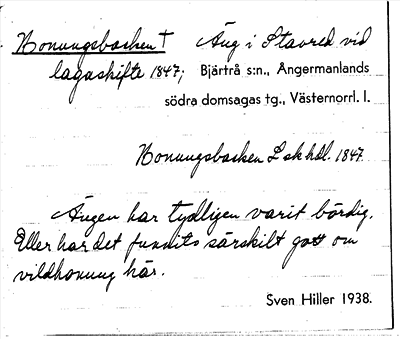 Honungsbacken † Äng i Stavred vid
lagaskifte 1847; Bjärtrå s:n., Ångermanlands
södra domsagas tg., Västernorrl. l.
Honungsbacken L sk hdl. 1847
Ängen har tydligen varit bördig.
Eller har det funnits särskilt gott om
vildhonung här.
Sven Hiller 1938.